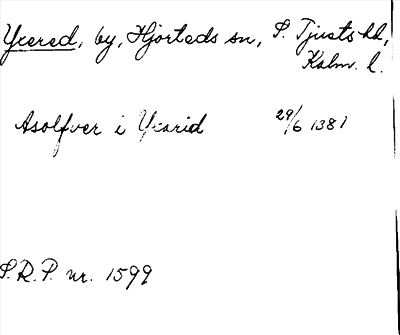 Ycered, by, Hjorteds sn, S. Tjusts hd,
Kalm. l.
Asolfver i Ycarid 29/6 1381
S.R.P. nr. 1599